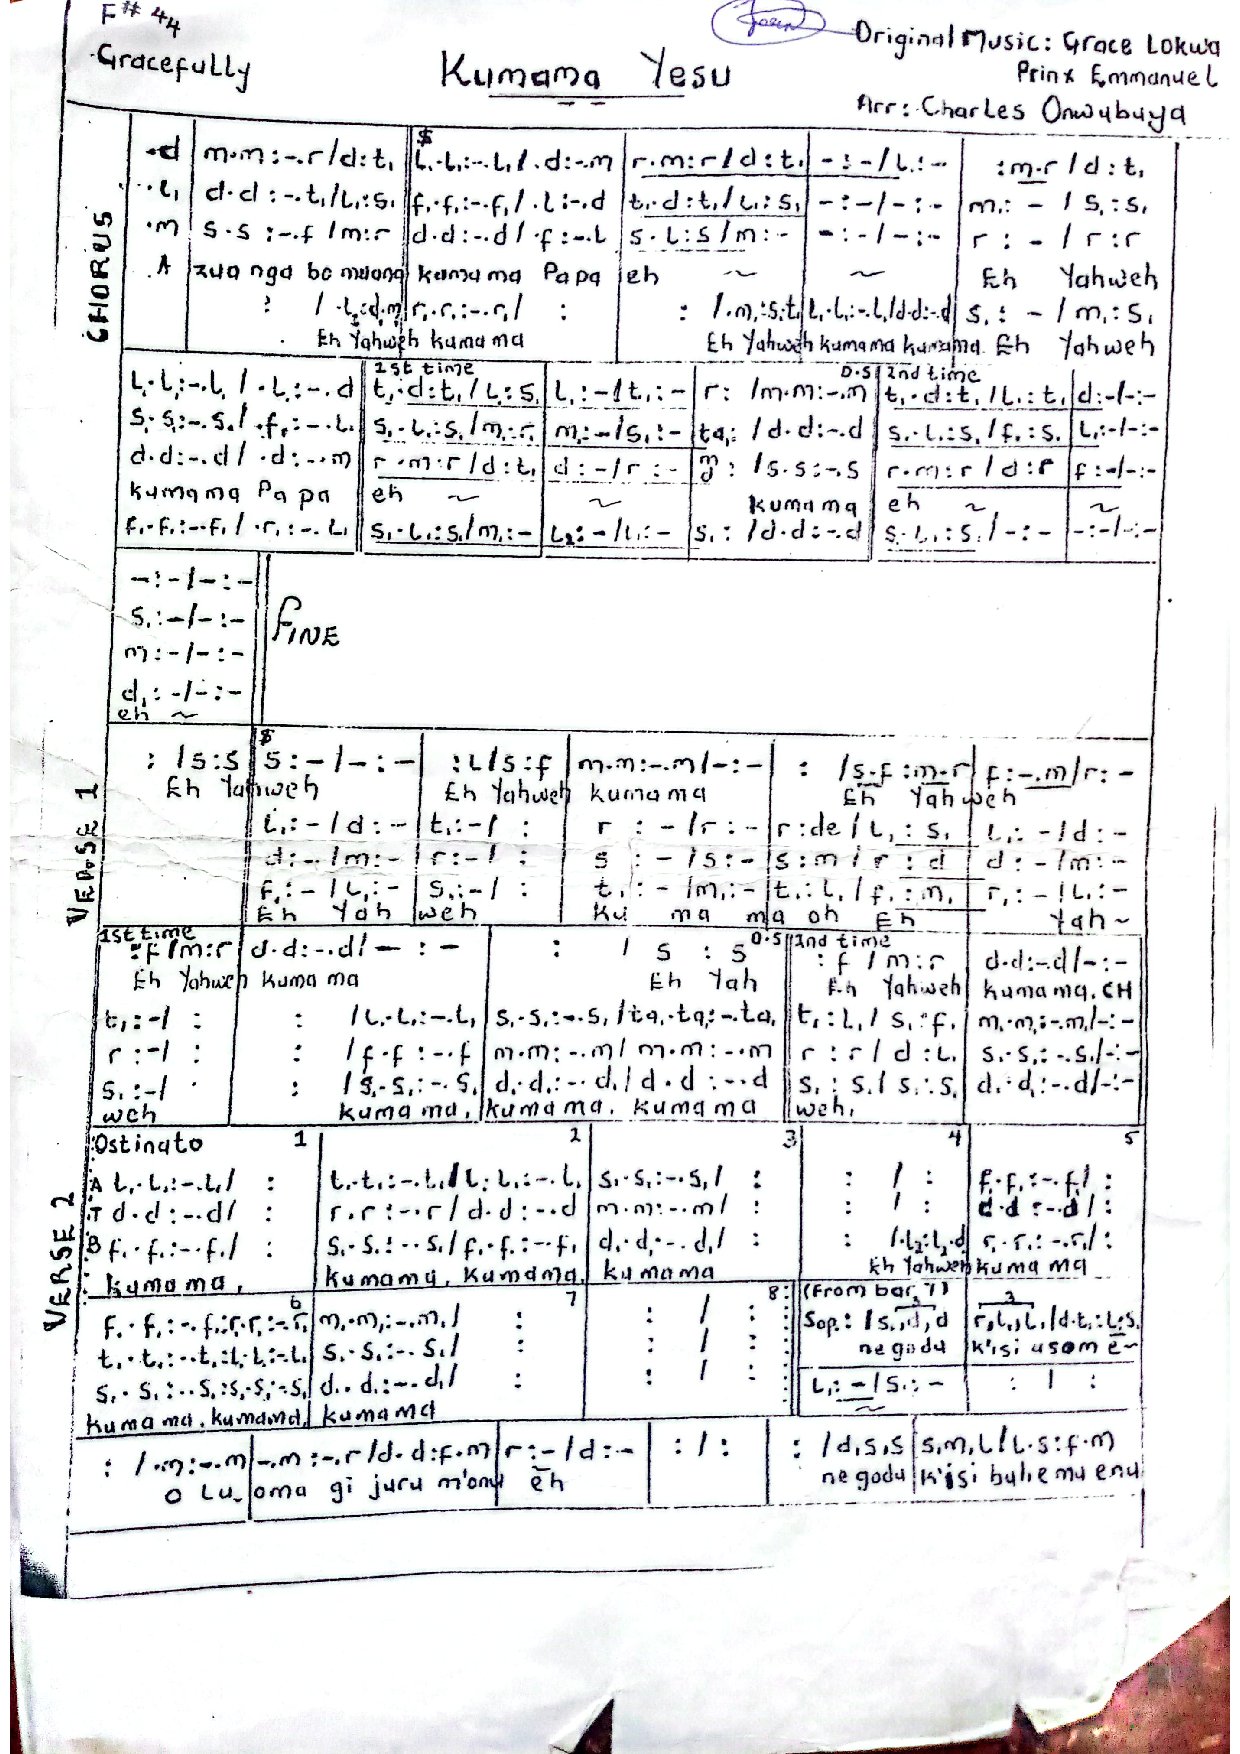 F# 44
Gracefully
Kumama Yesu
Original Music: Grace Lokwa
Prinx Emmanuel
Arr: Charles Onwubuya
CHORUS
.d m.m:-.r/d:t, $ l,.l,:-.l,/.d:-.m r.m:r/d:t, -:-/l,:- :m.r/d:t,
.l, d.d:-.t,/l,:s, f,.f,:-.f,/.l,:-.d t,.d:t,/l,:s, -:-/-:- m,:-/s,:s,
.m s.s:-.f/m:r d.d:-.d/.f:-.l s.l:s/m:- -:-/-:- r:-/r:r
A zua nga bo moang kumama Papa eh ~ ~ Eh Yahweh
: /.l₂:d,.m, r,.r,:-.r,/ : : /.m,:s,.t, l,.l,:-.l,/d.d:-.d s,:-/m,:s,
Eh Yahweh kumama Eh Yahweh kumama kumama Eh Yahweh
1st time D.S 2nd time
l,.l,:-.l,/.l,:-.d t,.d:t,/l,:s, l,:-/t,:- r: /m.m:-.m t,.d:t,/l,:t, d:-/-:-
s,.s,:-.s,/.f,:-.l, s,.l,:s,/m,:r, m,:-/s,:- ta,: /d.d:-.d s,.l,:s,/f,:s, l,:-/-:-
d.d:-.d/.d:-.m r.m:r/d:t, d:-/r:- m: /s.s:-.s r.m:r/d:r f:-/-:-
kumama Papa eh ~ ~ kumama eh ~ ~
f,.f,:-.f,/.r,:-.l, s,.l,:s,/m,:- l₂:-/l,:- s,: /d.d:-.d s,.l,:s,/-:- -:-/-:-
-:-/-:-
s,:-/-:-
FINE
m:-/-:-
d,:-/-:-
eh ~
VERSE 1
$
: /s:s s:-/-:- :l/s:f m.m:-.m/-:- : /s.f:m.r f:-.m/r:-
Eh Yahweh Eh Yahweh kumama Eh Yahweh
l,:-/d:- t,:-/ : r:-/r:- r:de/l,:s, l,:-/d:-
d:-/m:- r:-/ : s:-/s:- s:m/r:d d:-/m:-
f,:-/l,:- s,:-/ : t,:-/m,:- t,:l,/f,:m, r,:-/l,:-
Eh Yah weh Ku ma ma oh Eh Yah ~
1st time D.S 2nd time
:f/m:r d.d:-.d/-:- : / s : s :f/m:r d.d:-.d/-:-
Eh Yahweh kumama Eh Yah Eh Yahweh kumama. CH
t,:-/ : : /l,.l,:-.l, s,.s,:-.s,/ta,.ta,:-.ta, t,:l,/s,:f, m,.m,:-.m,/-:-
r:-/ : : /f.f:-.f m.m:-.m/m.m:-.m r:r/d:l, s,.s,:-.s,/-:-
s,:-/ : /s,.s,:-.s, d,.d,:-.d,/d.d:-.d s,:s,/s,:s, d,.d,:-.d/-:-
weh kumama, kumama. kumama weh,
VERSE 2
Ostinato 1 2 3 4 5
A l,.l,:-.l,/ : t,.t,:-.t,/l,.l,:-.l, s,.s,:-.s,/ : : / : f,.f,:-.f,/ :
T d.d:-.d/ : r.r:-.r/d.d:-.d m.m:-.m/ : : / : d.d:-.d/ :
B f,.f,:-.f,/ : s,.s,:-.s,/f,.f,:-.f, d,.d,:-.d,/ : : /.l₂:l₂.d, r,.r,:-.r,/ :
kumama, kumama, kumama, kumama Eh Yahweh kumama
6 7 8 (From bar 7) 3 3
f,.f,:-.f,:r,.r,:-.r, m,.m,:-.m,/ : : / : Sop.: /s,,d,d r,l,,l,/d.t,:l,.s,
t,.t,:-.t,:l,.l,:-.l, s,.s,:-.s,/ : : / : ne godu k'isi usom ē~
s,.s,:-.s,:s,.s,:-.s, d,.d,:-.d,/ : : / : l,:-/s,:- : / :
~
kumama. kumama, kumama
: /.m:-.m -.m:-.r/d.d:f.m r:-/d:- : / : : /d,s,s s,m,l/l.s:f.m
O Lu~ oma gi juru m'onu ēh ne godu k'isi buhe mu enu